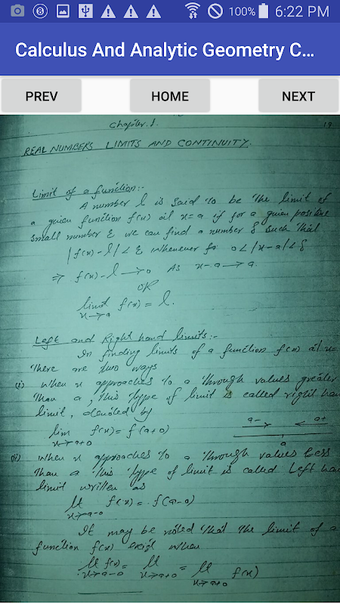 100% 6:22 PM
Calculus And Analytic Geometry C...
PREV HOME NEXT
Chapter.1
REAL NUMBERS LIMITS AND CONTINUITY.
Limit of a function:-
A number l is said to be the limit of
a given function f(x) at x=a if for a given positive
small number ε we can find a number δ such that
|f(x)-l|<ε whenever for 0<|x-a|<δ
⇒ f(x)-l→0 As x-a→
OR
limit f(x) = l.
x→
Left and Right hand limits:-
In finding limits of a function f(x) at x=
There are two ways
(i) when x approaches to a Through values greater
Than a, This type of limit is called right ha
limit, denoted by
lim f(x) = f(a+0)
x→a+0
a- a+
a
(ii) when x approaches to a Through values Less
Than a This type of limit is called Left ha
limit written as
Lt f(x) = f(a-0)
x→a-0
It may be noted That The limit of a
function f(x) exist when
Lt f(x) = Lt = Lt f(x)
x→a-0 x→a+0 x→